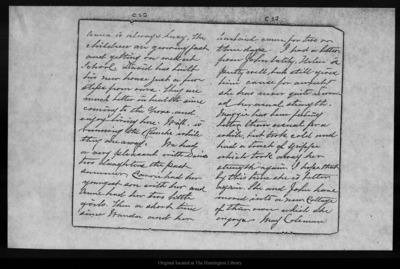 Anna is always busy, the
children are growing fast
and getting on well at
School. David has built
his new house just a few
steps from ours. They are
much better in health since
coming to the Grove and
enjoy living here. Will is
running the Ranch while
they are away. We had
a very pleasant visit
two daughters, the past
summer. had her
youngest son with her and
Anne had her two little
girls. Then a short time
since Wanda and her
husband came for two or
three days. I had a letter
from John lately. Helen is
pretty well but still gives
him cause for
she has never quite recover
ed her usual strength.
Maggie has been feeling
better than usual for a
while, but took cold and
had a touch of Grippe
which took away her
strength again. I hope that
by this time she is better
again. She and John have
moved into a new Cottage
of their own which she
enjoys. May Coleman
Original located at The Huntington Library